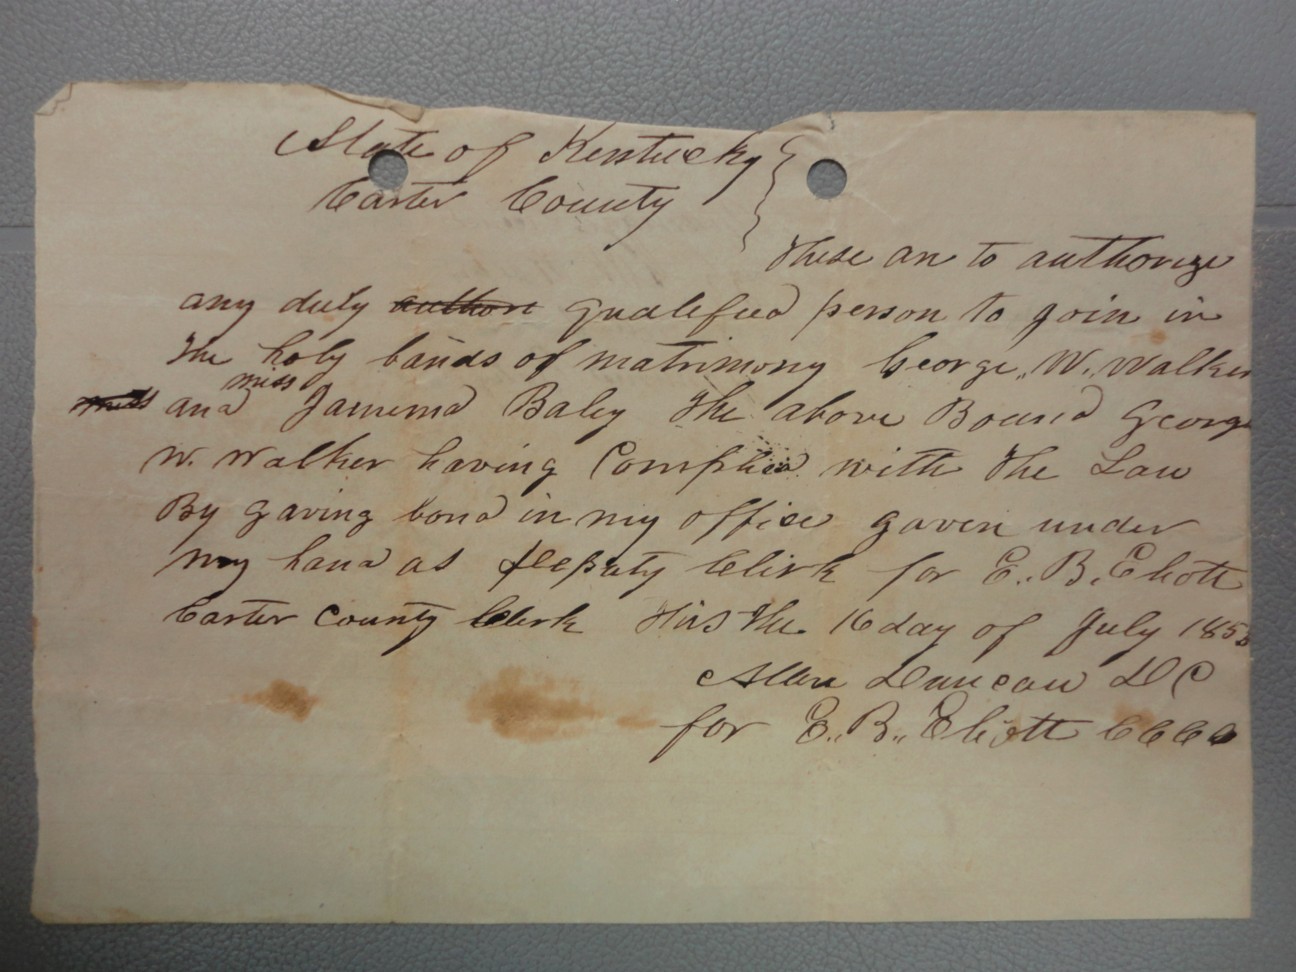 State of Kentucky }
Carter County
These are to authorize
any duly authori qualified person to join in
the holy bands of matrimony George W. Walker
miss
and Jamima Baley the above Bound George
W. Walker having Complied with the Law
By gaving bond in my office gaven under
my hand as Deputy Clirk for E. B. Eliott
Carter County Clerk this the 16 day of July 185
Allen Duncan D C
for E. B. Eliott CCC